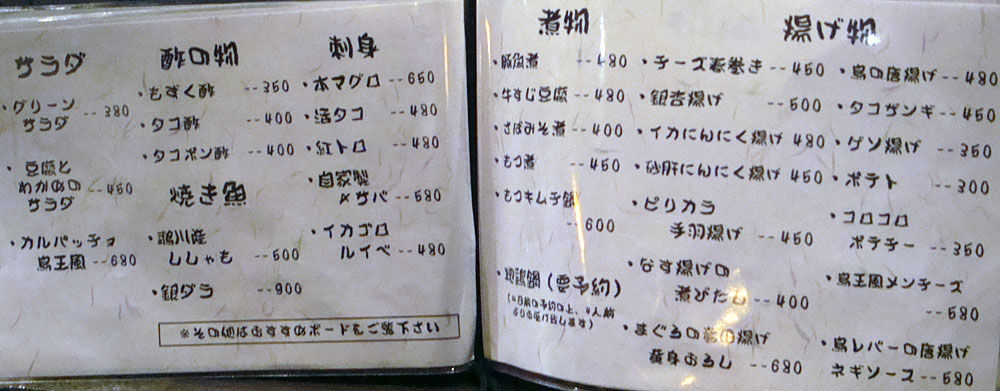 サラダ
・グリーン
サラダ --380
・豆腐と
わかめの
サラダ --450
・カルパッチョ
鳥王風 --680
酢の物
・もずく酢 --350
・タコ酢 --400
・タコポン酢 --400
焼き魚
・鵡川産
ししゃも --500
・銀ダラ --900
刺身
・本マグロ --650
・活タコ --480
・紅トロ --480
・自家製
〆サバ --580
・イカゴロ
ルイベ --480
※その他はおすすめボードをご覧下さい
煮物
・豚角煮 --480
・牛すじ豆腐 --480
・さばみそ煮 --400
・もつ煮 --450
・もつキムチ鍋
--600
・地鶏鍋(要予約)
揚げ物
・チーズ春巻き --450
・銀杏揚げ --500
・イカにんにく揚げ 480
・砂肝にんにく揚げ 450
・ピリカラ
手羽揚げ --450
・なす揚げの
煮びたし --400
・まぐろの竜の揚げ
薬身おろし --680
・鳥の唐揚げ --480
・タコザンギ --450
・ゲソ揚げ --350
・ポテト --300
・コロコロ
ポテチー --350
・鳥王風メンチーズ
--580
・鳥レバーの唐揚げ
ネギソース --580